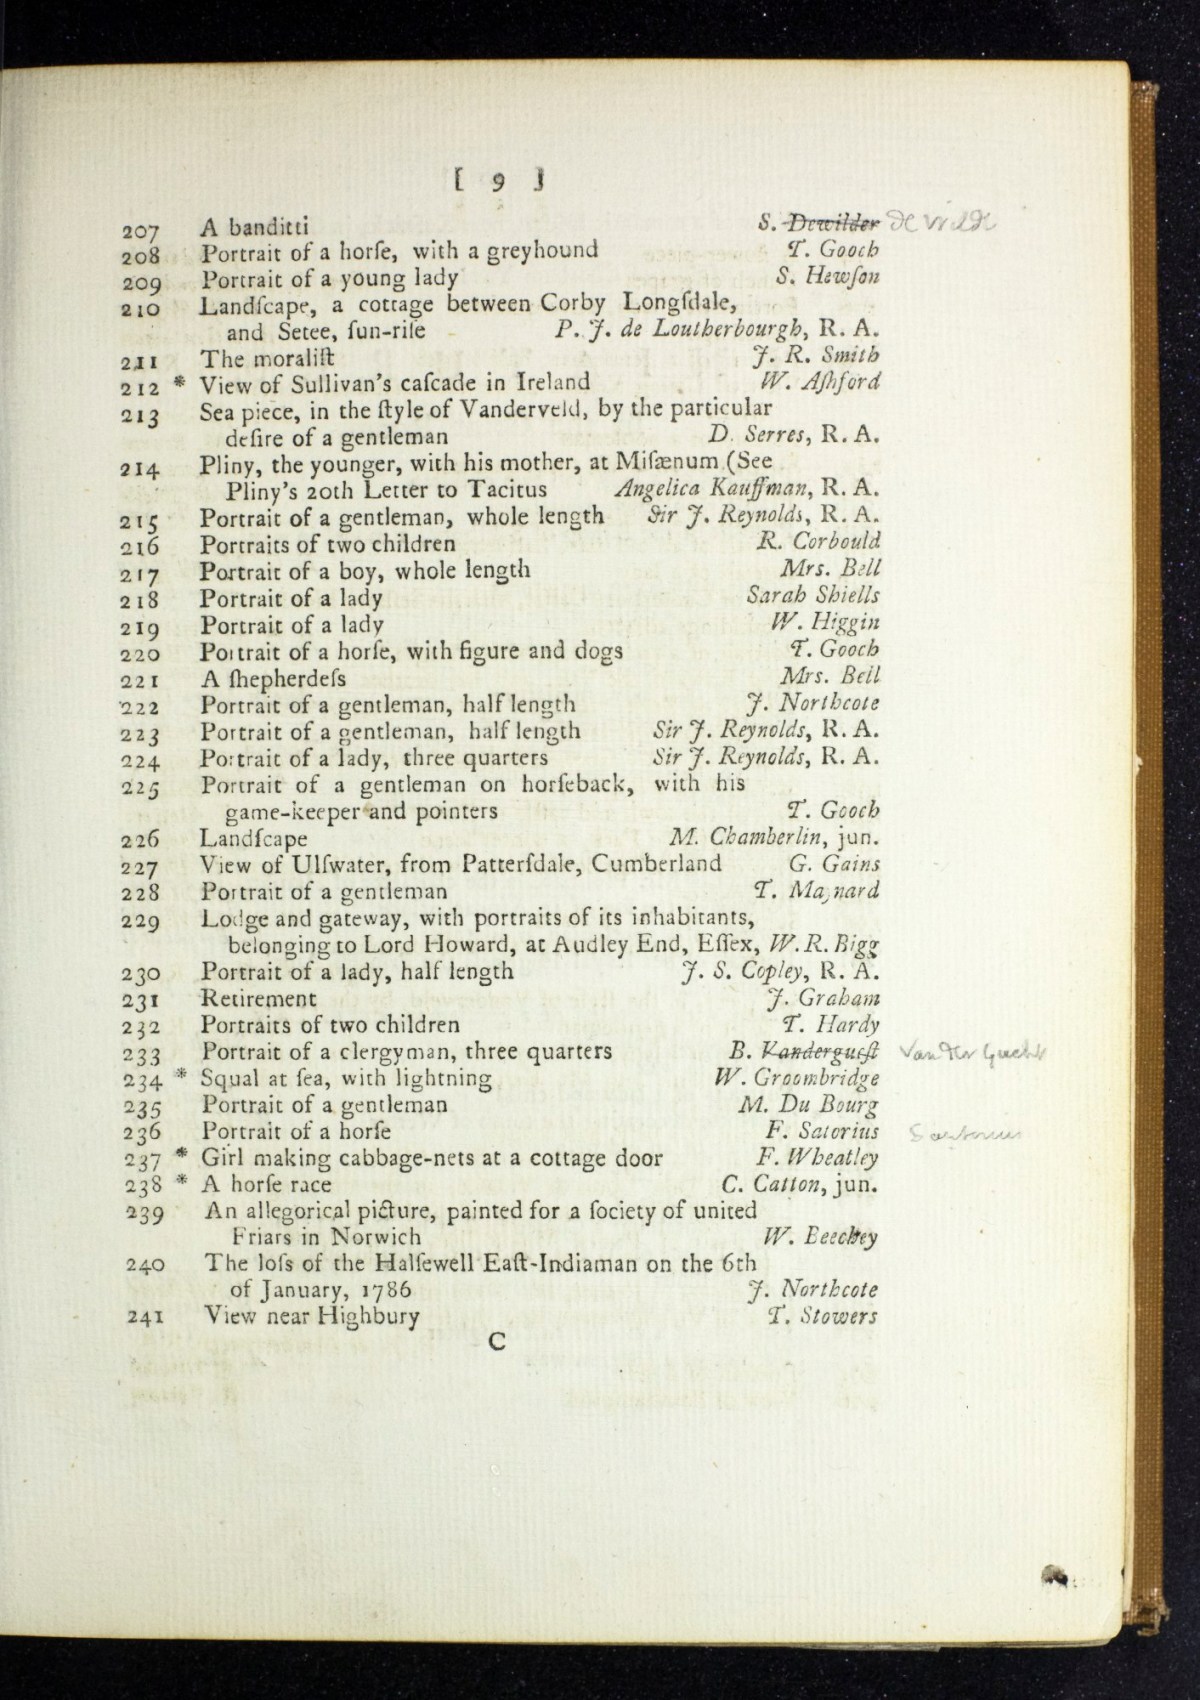 [ 9 ]
207 A banditti S. Dewilder De Wilde
208 Portrait of a horſe, with a greyhound T. Gooch
209 Portrait of a young lady S. Hewſon
210 Landſcape, a cottage between Corby Longſdale,
and Setee, ſun-riſe P. J. de Loutherbourgh, R. A.
211 The moraliſt J. R. Smith
212 * View of Sullivan's caſcade in Ireland W. Aſhford
213 Sea piece, in the ſtyle of Vanderveld, by the particular
deſire of a gentleman D. Serres, R. A.
214 Pliny, the younger, with his mother, at Miſænum (See
Pliny's 20th Letter to Tacitus Angelica Kauffman, R. A.
215 Portrait of a gentleman, whole length Sir J. Reynolds, R. A.
216 Portraits of two children R. Corbould
217 Portrait of a boy, whole length Mrs. Bell
218 Portrait of a lady Sarah Shiells
219 Portrait of a lady W. Higgin
220 Portrait of a horſe, with figure and dogs T. Gooch
221 A ſhepherdeſs Mrs. Bell
222 Portrait of a gentleman, half length J. Northcote
223 Portrait of a gentleman, half length Sir J. Reynolds, R. A.
224 Portrait of a lady, three quarters Sir J. Reynolds, R. A.
225 Portrait of a gentleman on horſeback, with his
game-keeper and pointers T. Gooch
226 Landſcape M. Chamberlin, jun.
227 View of Ulſwater, from Patterſdale, Cumberland G. Gains
228 Portrait of a gentleman T. Maynard
229 Lodge and gateway, with portraits of its inhabitants,
belonging to Lord Howard, at Audley End, Eſſex, W. R. Bigg
230 Portrait of a lady, half length J. S. Copley, R. A.
231 Retirement J. Graham
232 Portraits of two children T. Hardy
233 Portrait of a clergyman, three quarters B. Vanderguеſt Vander Gucht
234 * Squal at ſea, with lightning W. Groombridge
235 Portrait of a gentleman M. Du Bourg
236 Portrait of a horſe F. Satorius Sartorius
237 * Girl making cabbage-nets at a cottage door F. Wheatley
238 * A horſe race C. Catton, jun.
239 An allegorical picture, painted for a ſociety of united
Friars in Norwich W. Beechey
240 The loſs of the Halſewell Eaſt-Indiaman on the 6th
of January, 1786 J. Northcote
241 View near Highbury T. Stowers
C